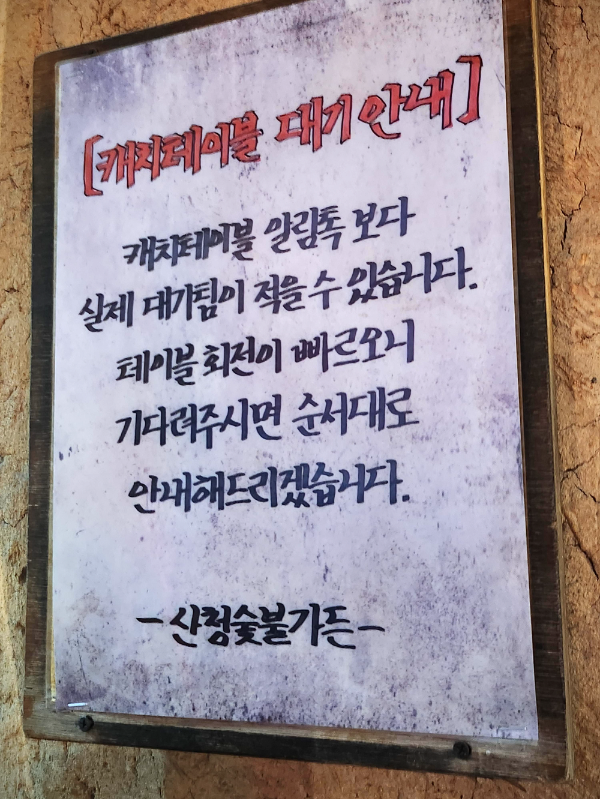 [캐치테이블 대기안내]
캐치테이블 알림톡 보다
실제 대기팀이 적을 수 있습니다.
테이블 회전이 빠르오니
기다려주시면 순서대로
안내해드리겠습니다.
-산청숯불가든-